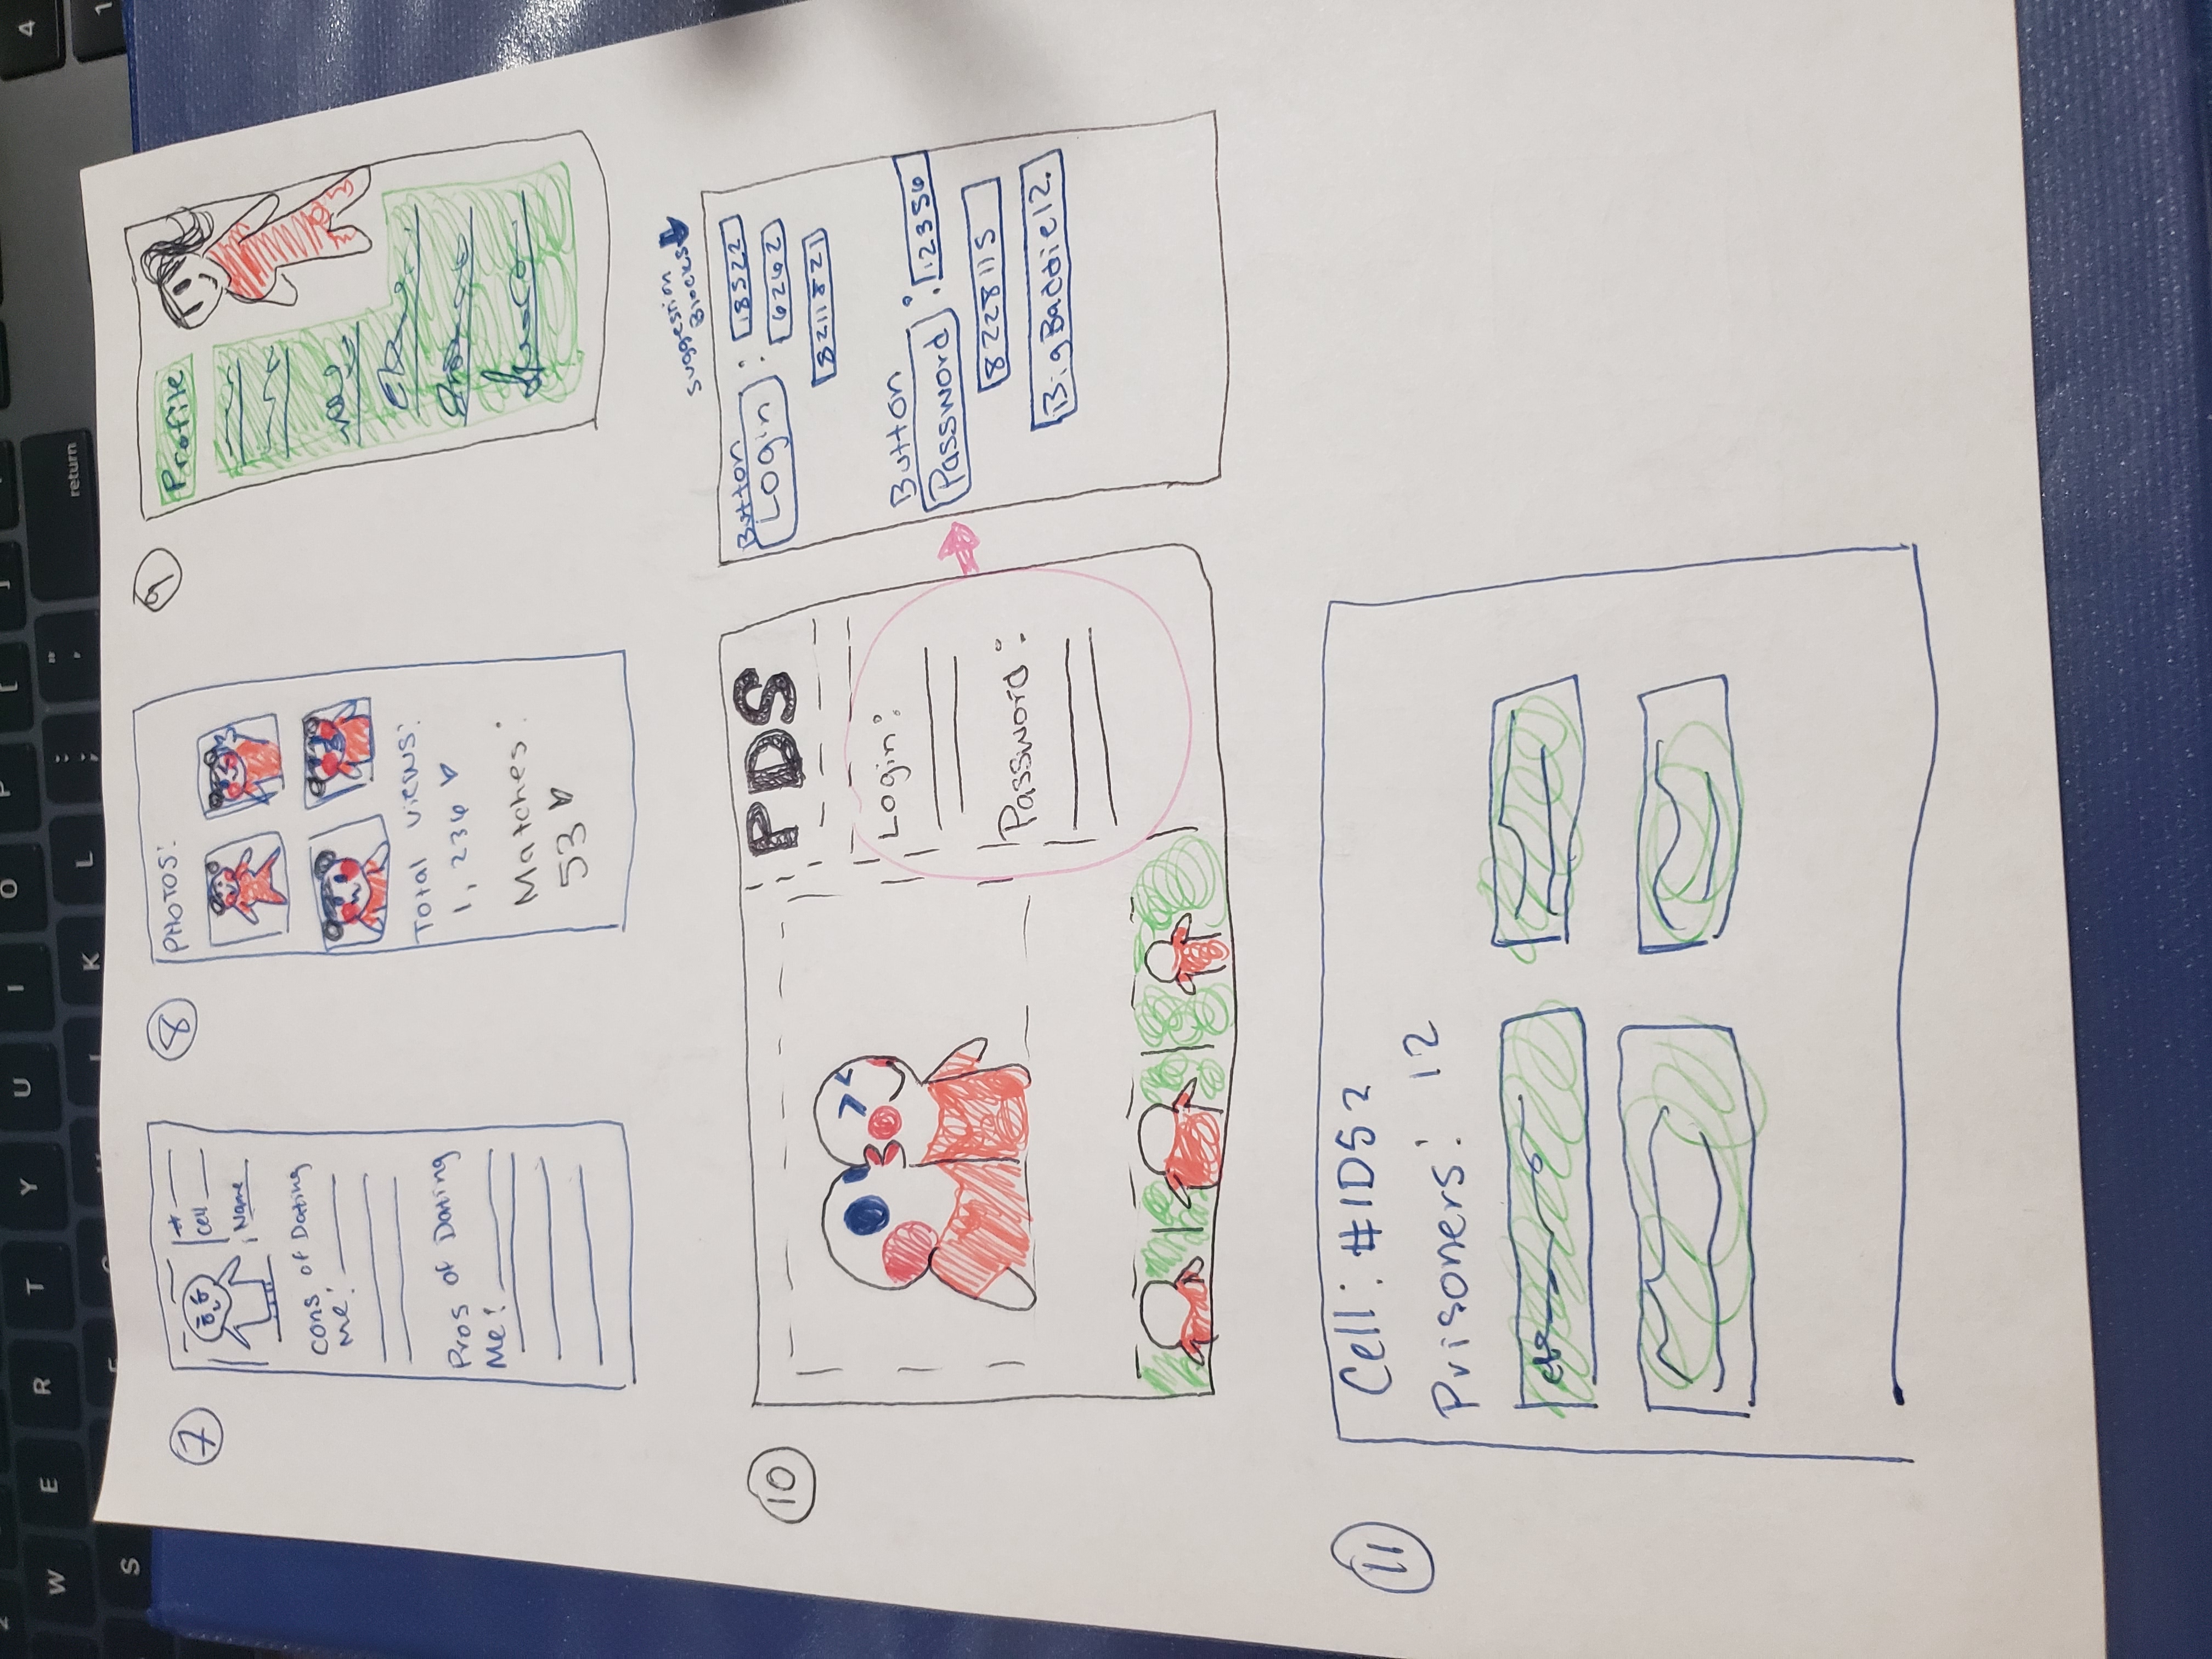 W E R T Y U I O P [ ]
return
4
S K L : ; " '
1
7
#
Cell
Name
Cons of Dating
Me:
Pros of Dating
Me:
8
PHOTOS:
Total Views:
1,236
Matches:
53
9
Profile
10
PDS
Login:
Password:
Suggestion
Blocks
Button
Login : 18522
6262
8211821
Button
Password : 12356
8228115
BigBaddie12.
11
Cell: #1DS2
Prisoners: 12